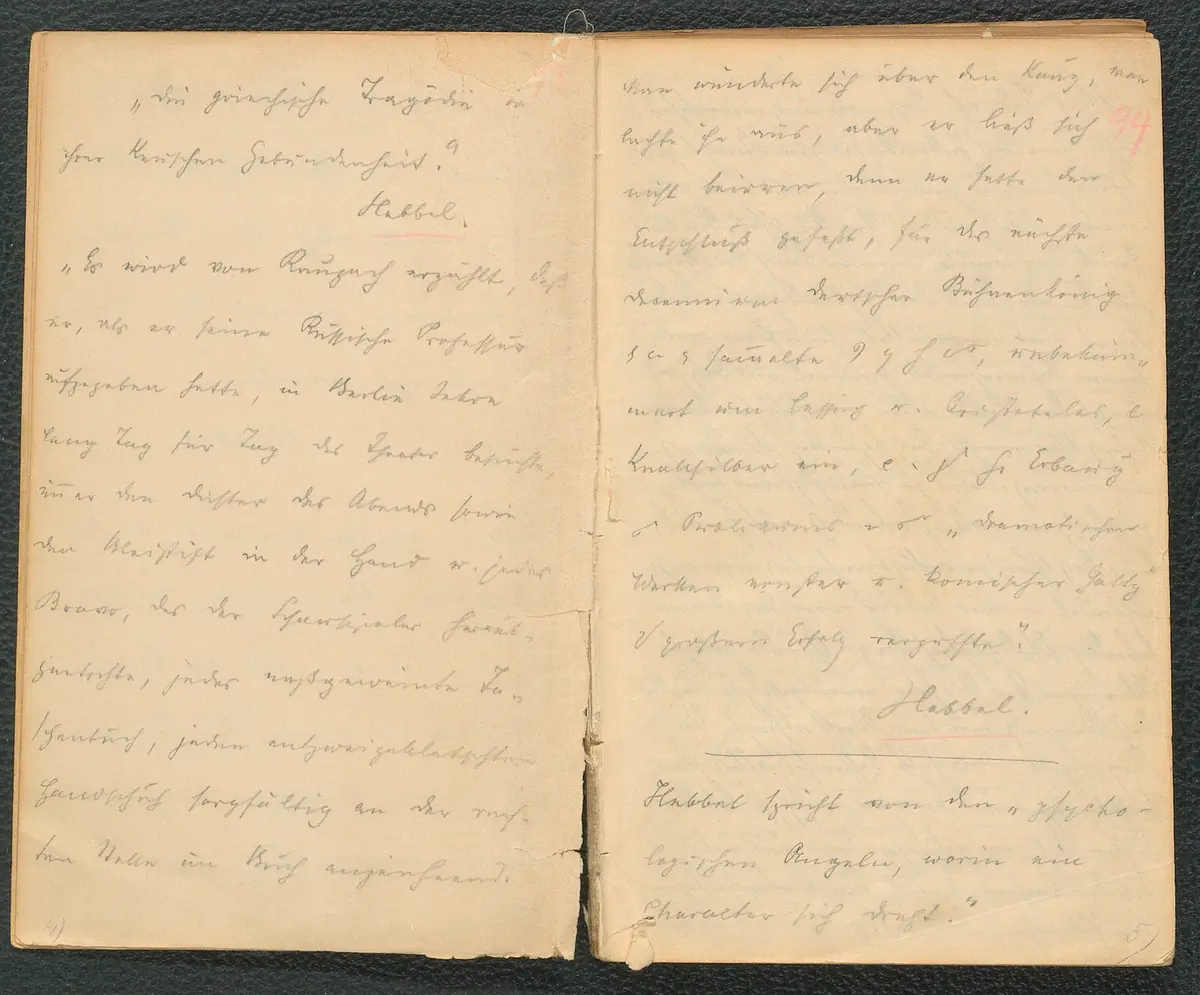 „Die griechische Tragödie in
ihrer keuschen Gebundenheit."
Hebbel.
„Es wird von Raupach erzählt, daß
er, als er seine Russische Professur
aufgegeben hatte, in Berlin Jahre
lang Tag für Tag das Theater besuchte,
den des Abends sowie
den Bleistift in der Hand u. jedes
Bravo, das der Schauspieler heraus-
lockte, jedes naßgeweinte Ta-
schentuch, jeden entzweigeklatschten
Handschuh sorgfältig an der rech-
ten Stelle im Buch anzeichnend.
4)
Man wunderte sich über den Kauz, man
lachte ihn aus, aber er ließ sich
94
nicht beirren, denn er hatte den
Entschluß gefaßt, für das nächste
Decennium deutscher Bühnenkönig
sammelte unbeküm-
mert um Lessing u. Aristoteles,
ein,
„dramatischen
Werken ernster u. komischer Gattg"
großem Erfolg
Hebbel.
Hebbel spricht von den „psycho-
logischen Angeln, worin ein
Charakter sich dreht."
5)